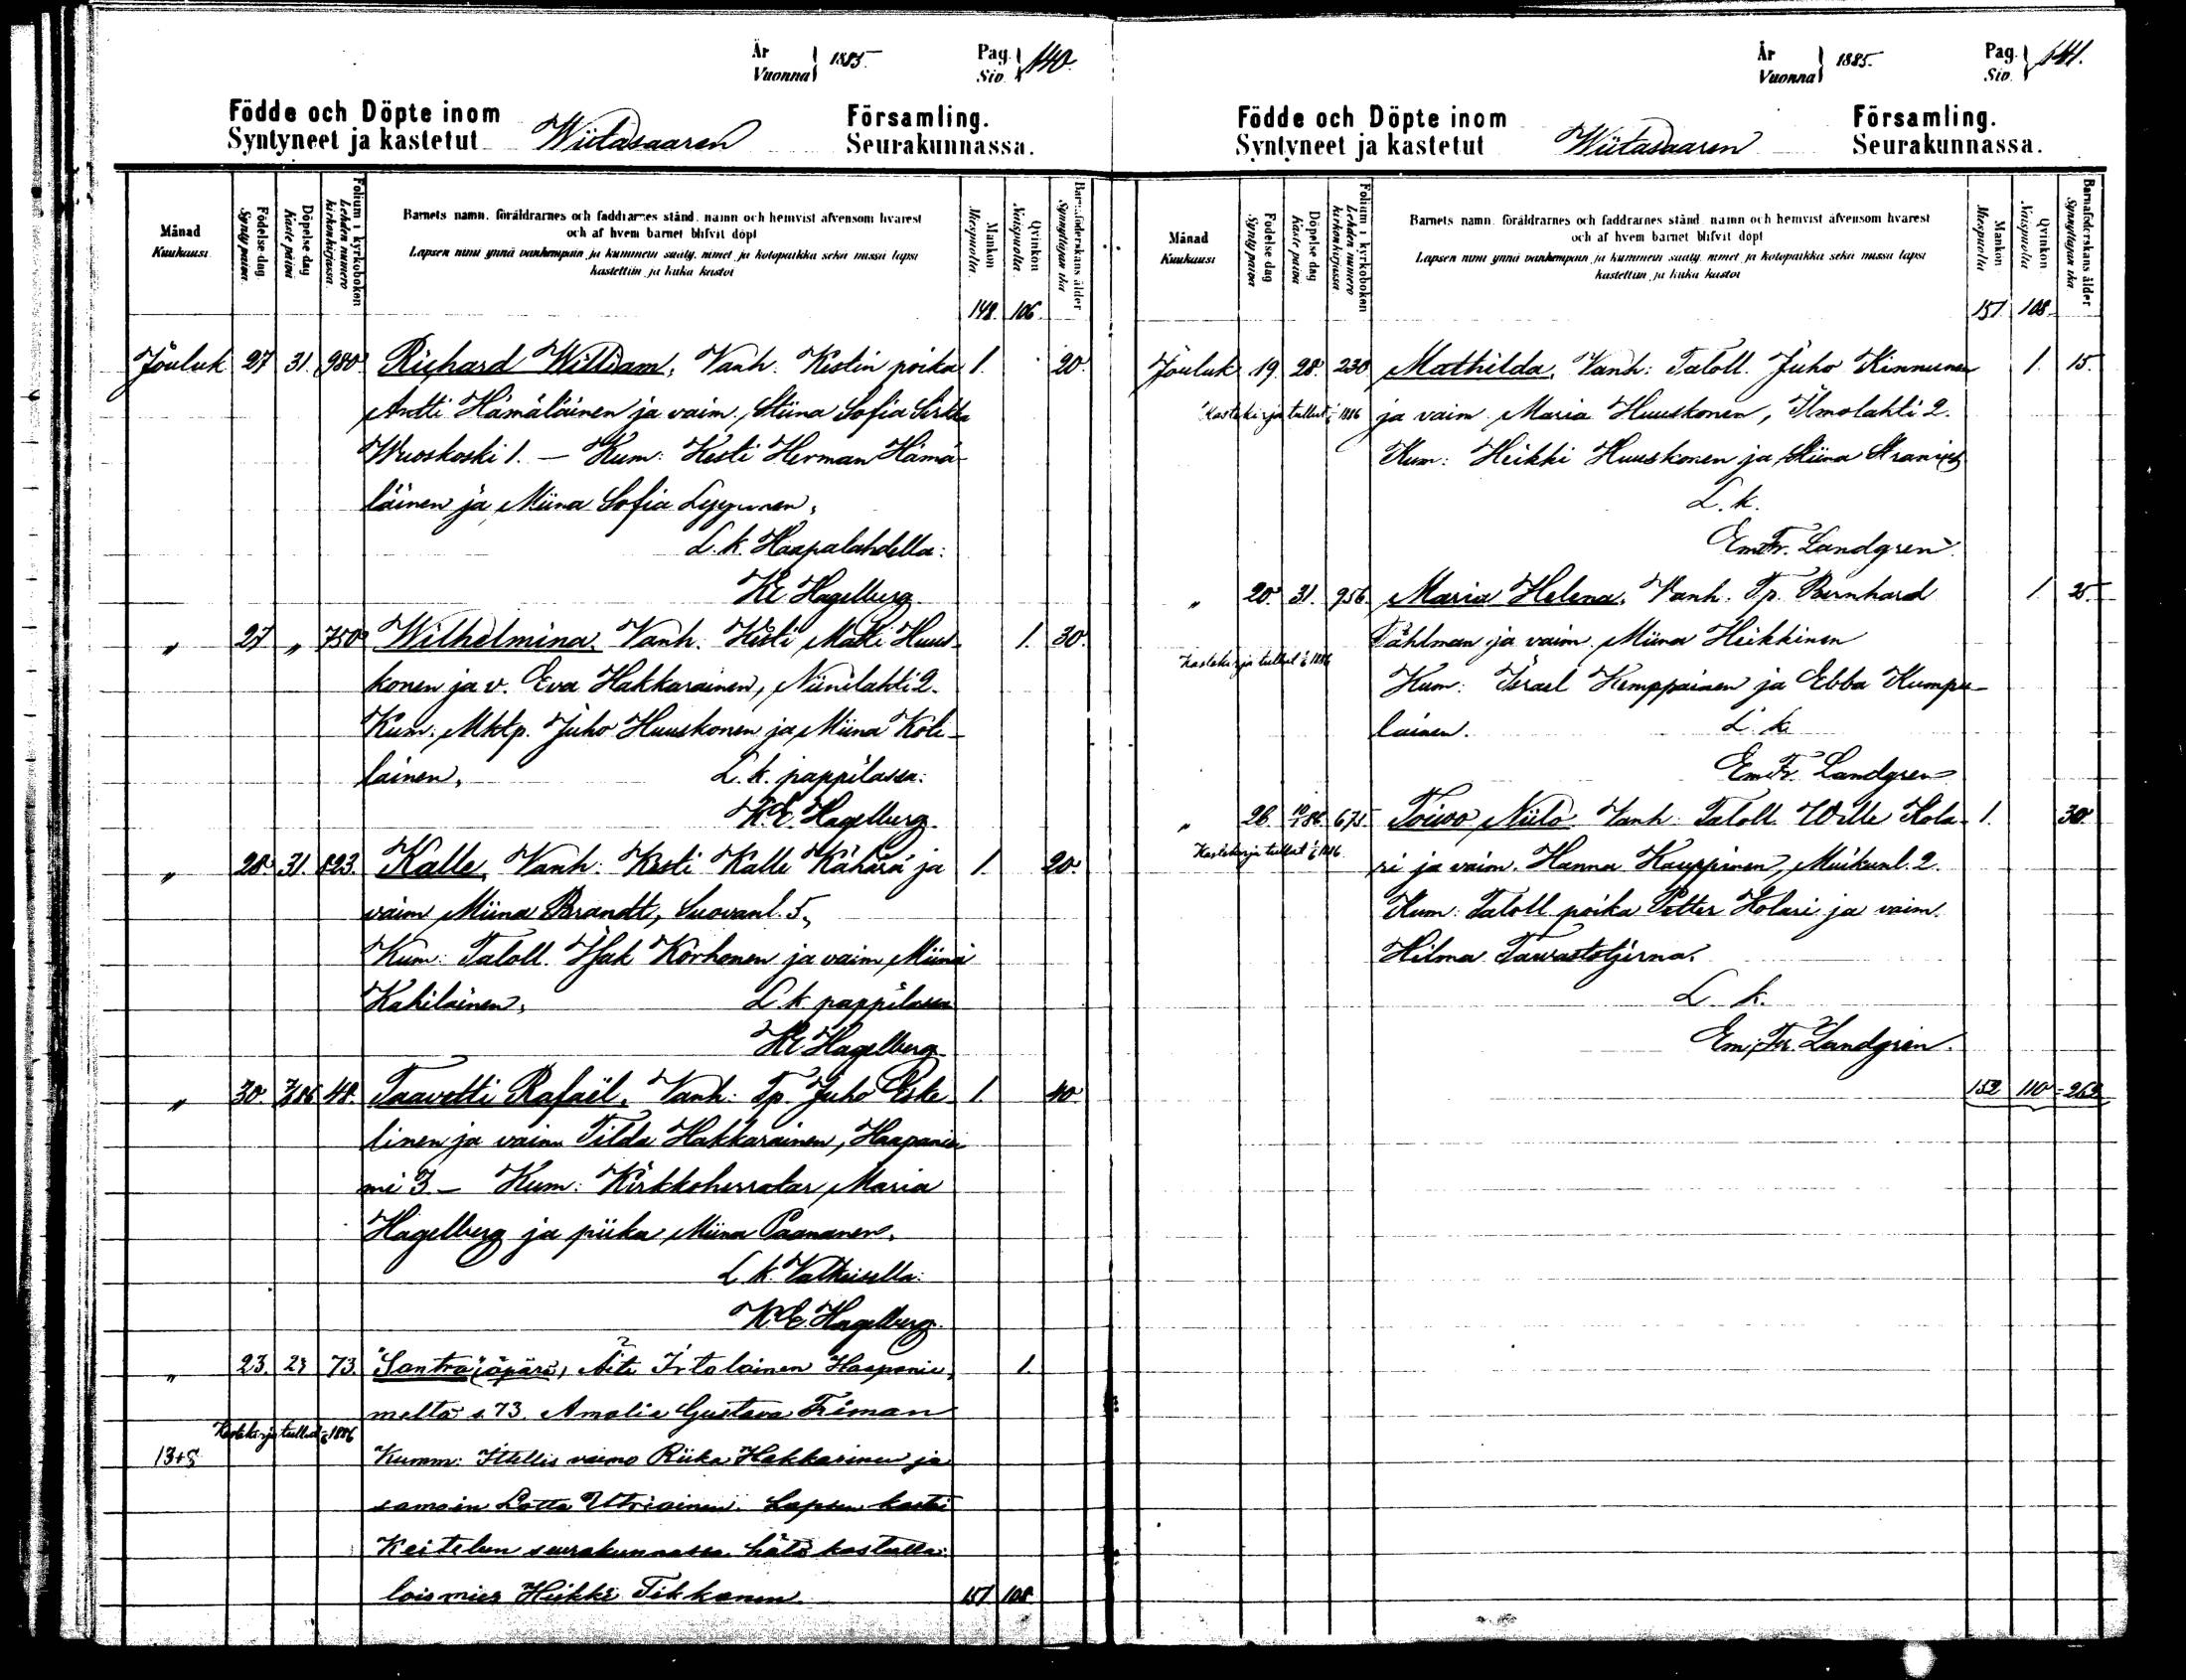 År Vuonna 1885.
Pag. Siv. 140.
Födde och Döpte inom
Syntyneet ja kastetut Wiitasaaren
Församling.
Seurakunnassa.
Månad Kuukausi
Födelse dag Synty päivä
Döpelse dag Kaste päivä
Folium i kyrkoboken Lehden numero kirkonkirjassa
Barnets namn, föräldrarnes och faddrarnes stånd, namn och hemvist äfvensom hvarest
och af hvem barnet blifvit döpt
Lapsen nimi ynnä vanhempain ja kummein sääty, nimet ja kotopaikka sekä missä lapsi
kastettiin ja kuka kastoi
Mankön Miespuolia
Qvinkön Naispuolia
Barnaföderskans ålder Synnyttäjän ikä
148. 106.
Jouluk 27 31. 980 Richard William, Vanh. Kestin poika 1. 20.
Antti Hämäläinen ja vaim. Stiina Sofia Sirkka
Wuoskoski 1. — Kum: Kesti Herman Hämä-
läinen ja Miina Sofia Leppänen,
L. k. Haapalahdella:
KE Hagelberg
" 27 " 750 Wilhelmina. Vanh. Kesti Matti Huus- 1. 30.
konen ja v. Eva Hakkarainen, Niinilahti 2.
Kum: Mktp. Juho Huuskonen ja Miina Koli-
lainen, L. k. pappilassa:
K.E. Hagelberg.
" 28 31. 823. Kalle, Vanh: Kesti Kalle Kähärä ja 1. 20.
vaim Miina Brandt, Suovanl. 5,
Kum: Taloll. Isak Korhonen ja vaim Miina
Kahilainen, L. k. pappilassa
KE Hagelberg
" 30. 7/1 86 48. Taavetti Rafaël, Vanh: Tp. Juho Eske- 1. 40.
linen ja vaim Tilda Hakkarainen, Haapanie-
mi 3 — Kum: Kirkkoherratar Maria
Hagelberg ja piika Miina Paananen,
L. k. Valkeisella:
K.E. Hagelberg.
" 23. 23 73. "Santra" (äpärä) Äiti Irtolainen Haapanie- 1.
meltä s. 73. Amalia Gustava Friman
Kastekirja tullut 1886
13+8 Kumm: Itellis vaimo Riika Hakkarinen ja
samoin Lotta Utriainen. Lapsen kastoi
Keiteleen seurakunnassa hätä kasteella:
loismies Heikki Tikkanen.
151 108
År Vuonna 1885.
Pag. Siv. 141.
Födde och Döpte inom
Syntyneet ja kastetut Wiitasaaren
Församling.
Seurakunnassa.
Månad Kuukausi
Födelse dag Synty päivä
Döpelse dag Kaste päivä
Folium i kyrkoboken Lehden numero kirkonkirjassa
Barnets namn, föräldrarnes och faddrarnes stånd, namn och hemvist äfvensom hvarest
och af hvem barnet blifvit döpt
Lapsen nimi ynnä vanhempain ja kummein sääty, nimet ja kotopaikka sekä missä lapsi
kastettiin ja kuka kastoi
Mankön Miespuolia
Qvinkön Naispuolia
Barnaföderskans ålder Synnyttäjän ikä
151 108
Jouluk 19. 28. 230 Mathilda, Vanh: Taloll. Juho Kinnunen 1. 15.
Kastekirja tullut 1886 ja vaim. Maria Huuskonen, Ilmolahti 2.
Kum: Heikki Huuskonen ja Stiina
L. k.
Em Fr. Landgren.
" 20. 31. 956. Maria Helena, Vanh. Tp. Bernhard 1. 25.
Påhlman ja vaim. Miina Heikkinen
Kastekirja tullut 1886
Kum: Israel Kemppainen ja Ebba Kumpu-
lainen. L. k.
Em Fr. Landgren
" 26. 10/1 86 675. Toiwo Niilo Vanh: Taloll. Wille Kola- 1. 30
Kastekirja tullut 1886. ri ja vaim. Hanna Kauppinen, Muikunl. 2.
Kum: Taloll. poika Petter Kolari ja vaim.
Hilma Tawaststjerna.
L. k.
Em. Fr. Landgren.
152 110 = 262